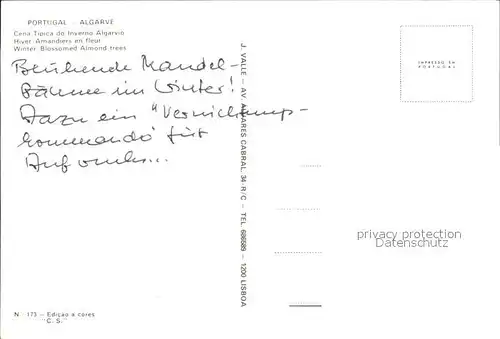 PORTUGAL - ALGARVE
Cena Tipica do Inverno Algarvio
Hiver-Amandiers en fleur
Winter Blossomed Almond trees
Blühende Mandel-
Bäume im Winter!
Dazu ein "Vernichtungs-
kommando" für
J. VALLE - AV. ALVARES CABRAL, 34-R/C - TEL. 686689 - 1200 LISBOA
IMPRESSO EM
PORTUGAL
privacy protection
Datenschutz
N.º 173 - Edição a cores
"C. S."